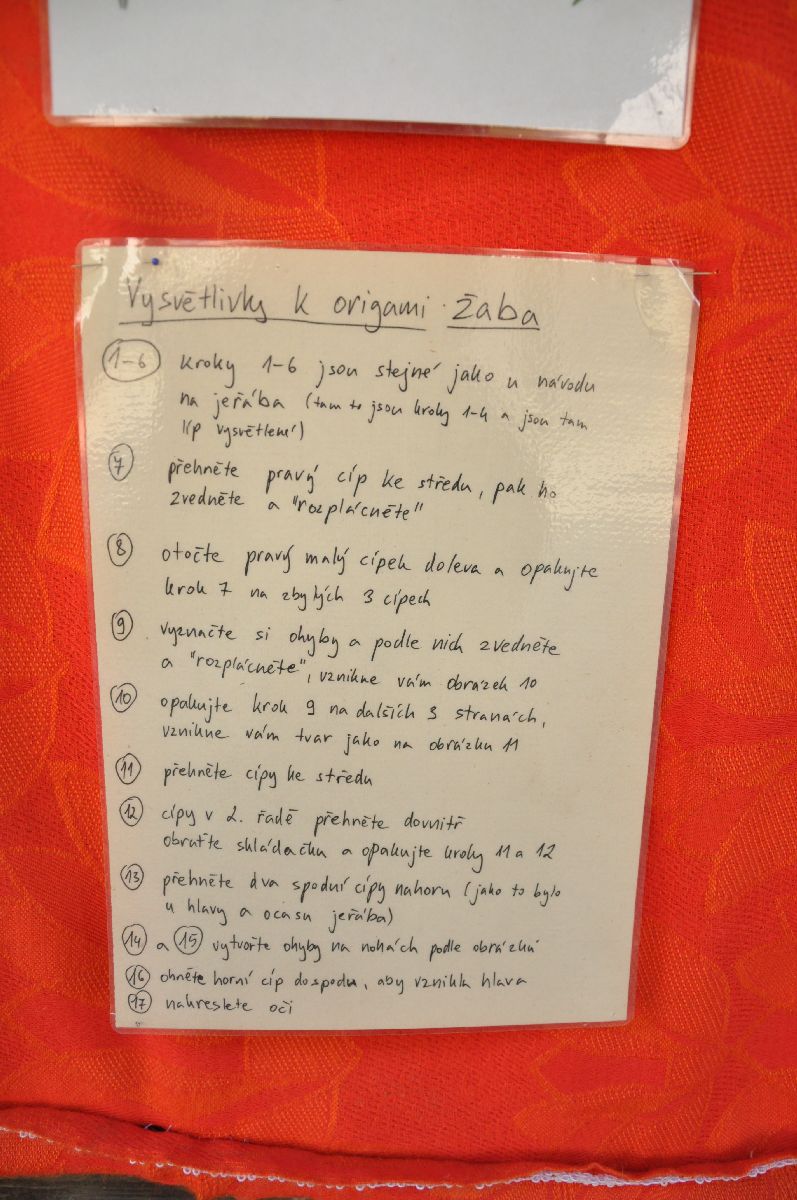 Vysvětlivky k origami žaba
1-6 kroky 1-6 jsou stejné jako u návodu
na jeřába (tam to jsou kroky 1-4 a jsou tam
líp vysvětlené)
7 přehněte pravý cíp ke středu, pak ho
zvedněte a "rozplácněte"
8 otočte pravý malý cípek doleva a opakujte
krok 7 na zbylých 3 cípech
9 vyznačte si ohyby a podle nich zvedněte
a "rozplácněte", vznikne vám obrázek 10
10 opakujte krok 9 na dalších 3 stranách,
vznikne vám tvar jako na obrázku 11
11 přehněte cípy ke středu
12 cípy v 2. řadě přehněte dovnitř
obraťte skládačku a opakujte kroky 11 a 12
13 přehněte dva spodní cípy nahoru (jako to bylo
u hlavy a ocasu jeřába)
14 a 15 vytvořte ohyby na nohách podle obrázků
16 ohněte horní cíp dospodu, aby vznikla hlava
17 nakreslete oči